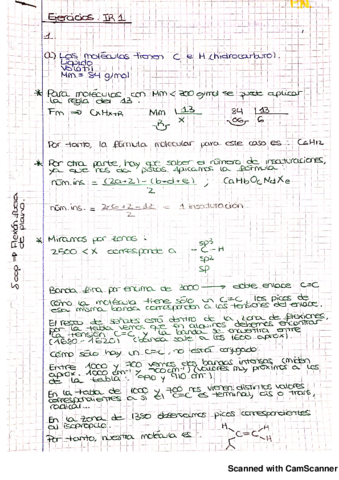 Ejercicios. IR 1
1.
a) Las moléculas tienen C e H (hidrocarburo).
Líquido
Volátil
Mm = 84 g/mol
* Para moléculas con Mm < 200 g/mol se puede aplicar
la regla del 13.
Fm ⇒ CnHn+R Mm | 13 84 | 13
R x 06 6
Por tanto, la fórmula molecular para este caso es: C6H12
* Por otra parte, hay que saber el número de insaturaciones,
ya que nos da pistas. Aplicamos la fórmula
núm.ins = (2a+2)-(b+d+e) / 2 ; CaHbOcNdXe
núm. ins. = 2·6+2-12 / 2 = 1 insaturación
* Miramos por zonas:
2500 < X corresponde a
sp3
sp2
sp
- C - H
Banda fina por encima de 3000 → doble enlace C=C
Como la molécula tiene sólo un C=C los picos de
esa misma banda corresponden a los tensiones del enlace.
El resto de señales está dentro de la zona de flexiones,
por la tabla vemos que en alquenos debemos encontrar
la tensión C=C y la banda se encuentra entre
(1680-1620) (banda sale a los 1600 aprox).
Como sólo hay un C=C, no está conjugado
Entre 1000 y 700 vemos dos bandas intensas (miden
aprox. 1000 cm-1 y 900 cm-1) (valores muy próximos a los
de la tabla: 990 y 910 cm-1)
En la tabla de 1000 y 700 nos vienen distintos valores
correspondientes a si el C=C es terminal, cis o trans,
En la zona de 1380 observamos picos correspondientes
au isopropilo.
Por tanto, nuestra molécula es:
H H
C=C
H
Scanned with CamScanner